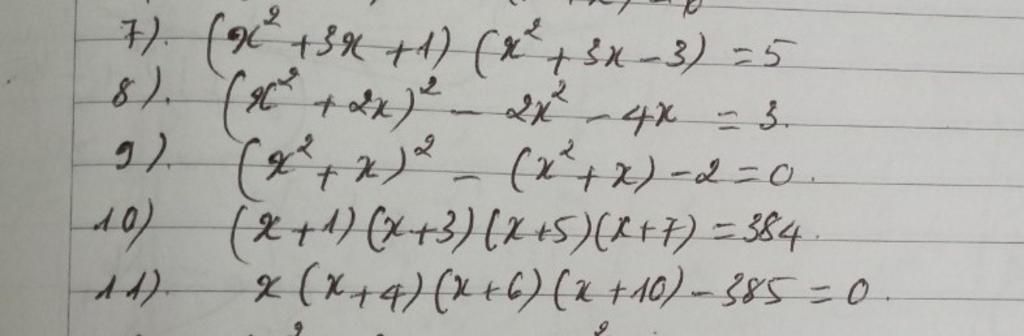 7). (x² + 3x + 1) (x² + 3x - 3) = 5
8). (x² + 2x)² - 2x² - 4x = 3.
9). (x² + x)² - (x² + x) - 2 = 0.
10) (x + 1) (x + 3) (x + 5) (x + 7) = 384.
11). x (x + 4) (x + 6) (x + 10) - 385 = 0.